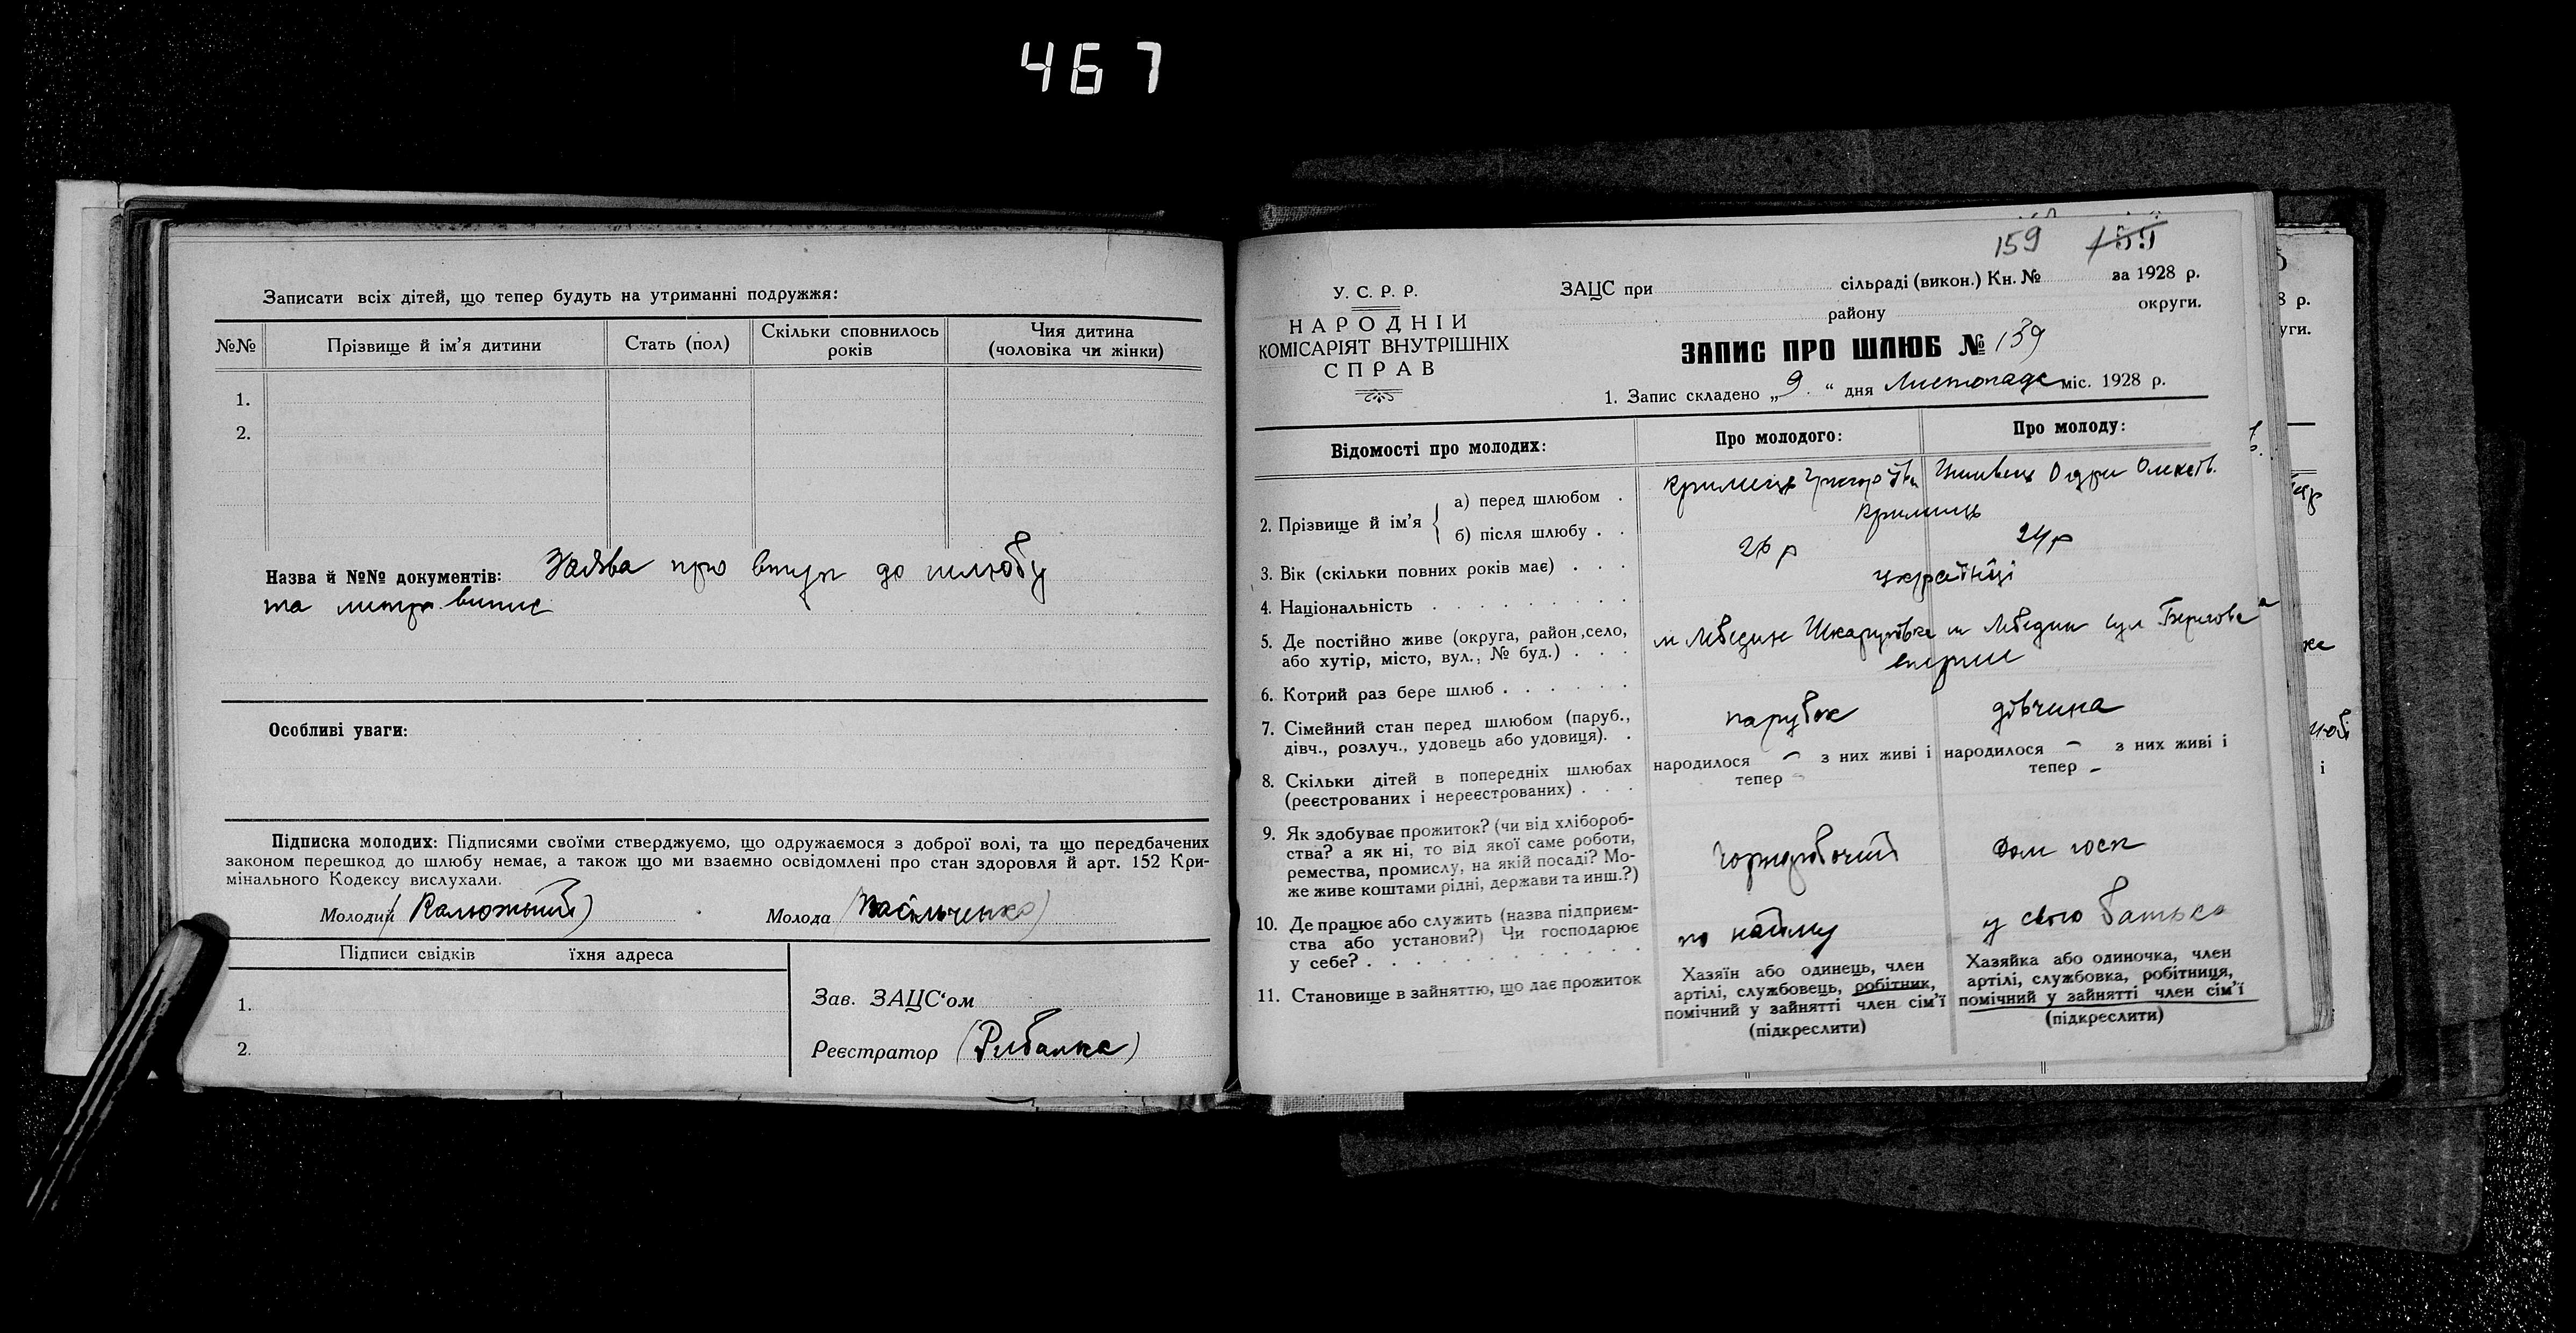 467
Записати всіх дітей, що тепер будуть на утриманні подружжя:
№№ Прізвище й ім'я дитини Стать (пол) Скільки сповнилось років Чия дитина (чоловіка чи жінки)
1.
2.
Назва й №№ документів: Заява про вступ до шлюбу
та метр. випис
Особливі уваги:
Підписка молодих: Підписями своїми стверджуємо, що одружаємося з доброї волі, та що передбачених
законом перешкод до шлюбу немає, а також що ми взаємно освідомлені про стан здоровля й арт. 152 Кри-
мінального Кодексу вислухали.
Молодий (Калюжний) Молода (Васільченко)
Підписи свідків їхня адреса
1.
2.
Зав. ЗАЦС'ом
Реєстратор (Рибалка)
159 159
У. С. Р. Р.
НАРОДНІЙ
КОМІСАРІЯТ ВНУТРІШНІХ
СПРАВ
ЗАЦС при сільраді (викон.) Кн. № за 1928 р.
району округи.
ЗАПИС ПРО ШЛЮБ № 139
1. Запис складено „9." дня Листопада міс. 1928 р.
Відомості про молодих: Про молодого: Про молоду:
2. Прізвище й ім'я { а) перед шлюбом . Кримець Григор Ів. Олексіїв.
б) після шлюбу . . Кримець
3. Вік (скільки повних років має) . . . 26 р 24 р
4. Національність . . . . . . . . . українці
5. Де постійно живе (округа, район, село,
або хутір, місто, вул., № буд.) . . . м Лебедин Шкарупівка м Лебедин вул Берегова
6. Котрий раз бере шлюб . . . . . . вперше
7. Сімейний стан перед шлюбом (паруб.,
дівч., розлуч., удовець або удовиця). . парубок дівчина
8. Скільки дітей в попередніх шлюбах
(реєстрованих і нереєстрованих) . . . народилося – з них живі і тепер – народилося – з них живі і тепер –
9. Як здобуває прожиток? (чи від хлібороб-
ства? а як ні, то від якої саме роботи,
ремества, промислу, на якій посаді? Мо-
же живе коштами рідні, держави та инш.?) Чорноробочий Дом госп
10. Де працює або служить (назва підприєм-
ства або установи?) Чи господарює
у себе? . . . . . . . . . . . по найму у свого батька
11. Становище в зайняттю, що дає прожиток
Хазяїн або одинець, член
артілі, службовець, робітник,
помічний у зайнятті член сім'ї
(підкреслити)
Хазяйка або одиночка, член
артілі, службовка, робітниця,
помічний у зайнятті член сім'ї
(підкреслити)